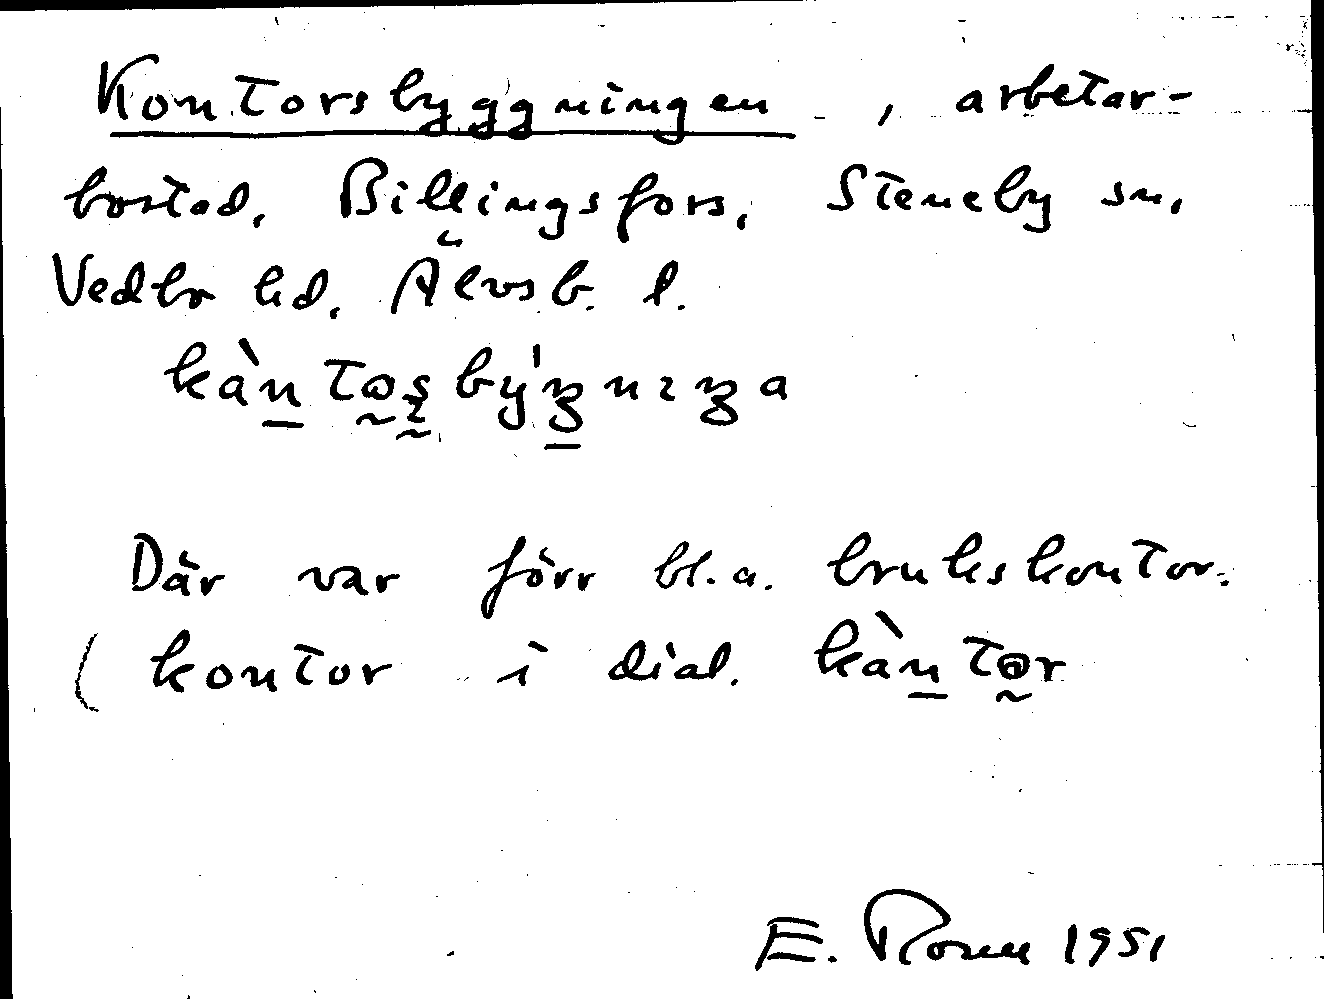 Kontorsbyggningen, arbetar-
bostad, Billingsfors, Steneby sn,
Vedbo hd, Älvsb. l.
kàntɷʂbýŋnɪŋa
Där var förr bl.a. brukskontor.
( kontor i dial. kàntɷr
E. Ronne 1951